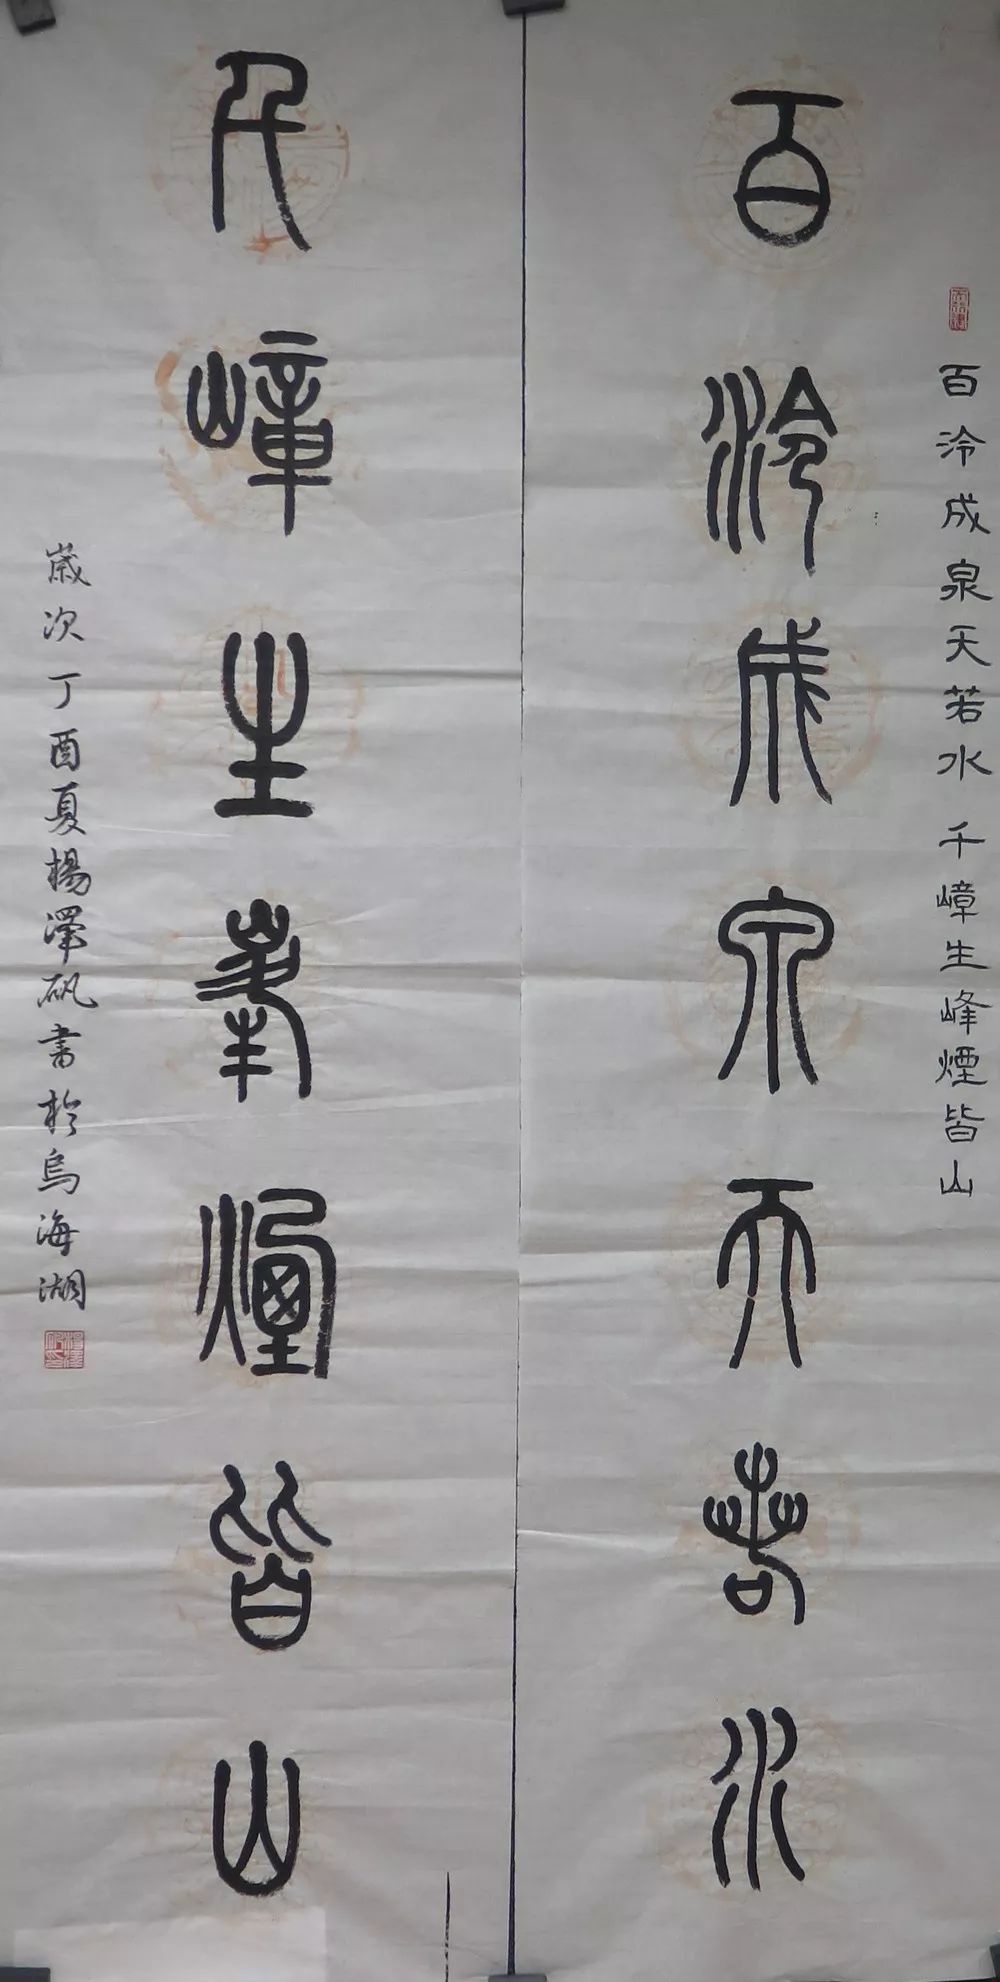 百泠成泉天若水
百泠成泉天若水 千嶂生峰煙皆山
千嶂生峯煙皆山
歲次丁酉夏楊澤矾書於烏海湖